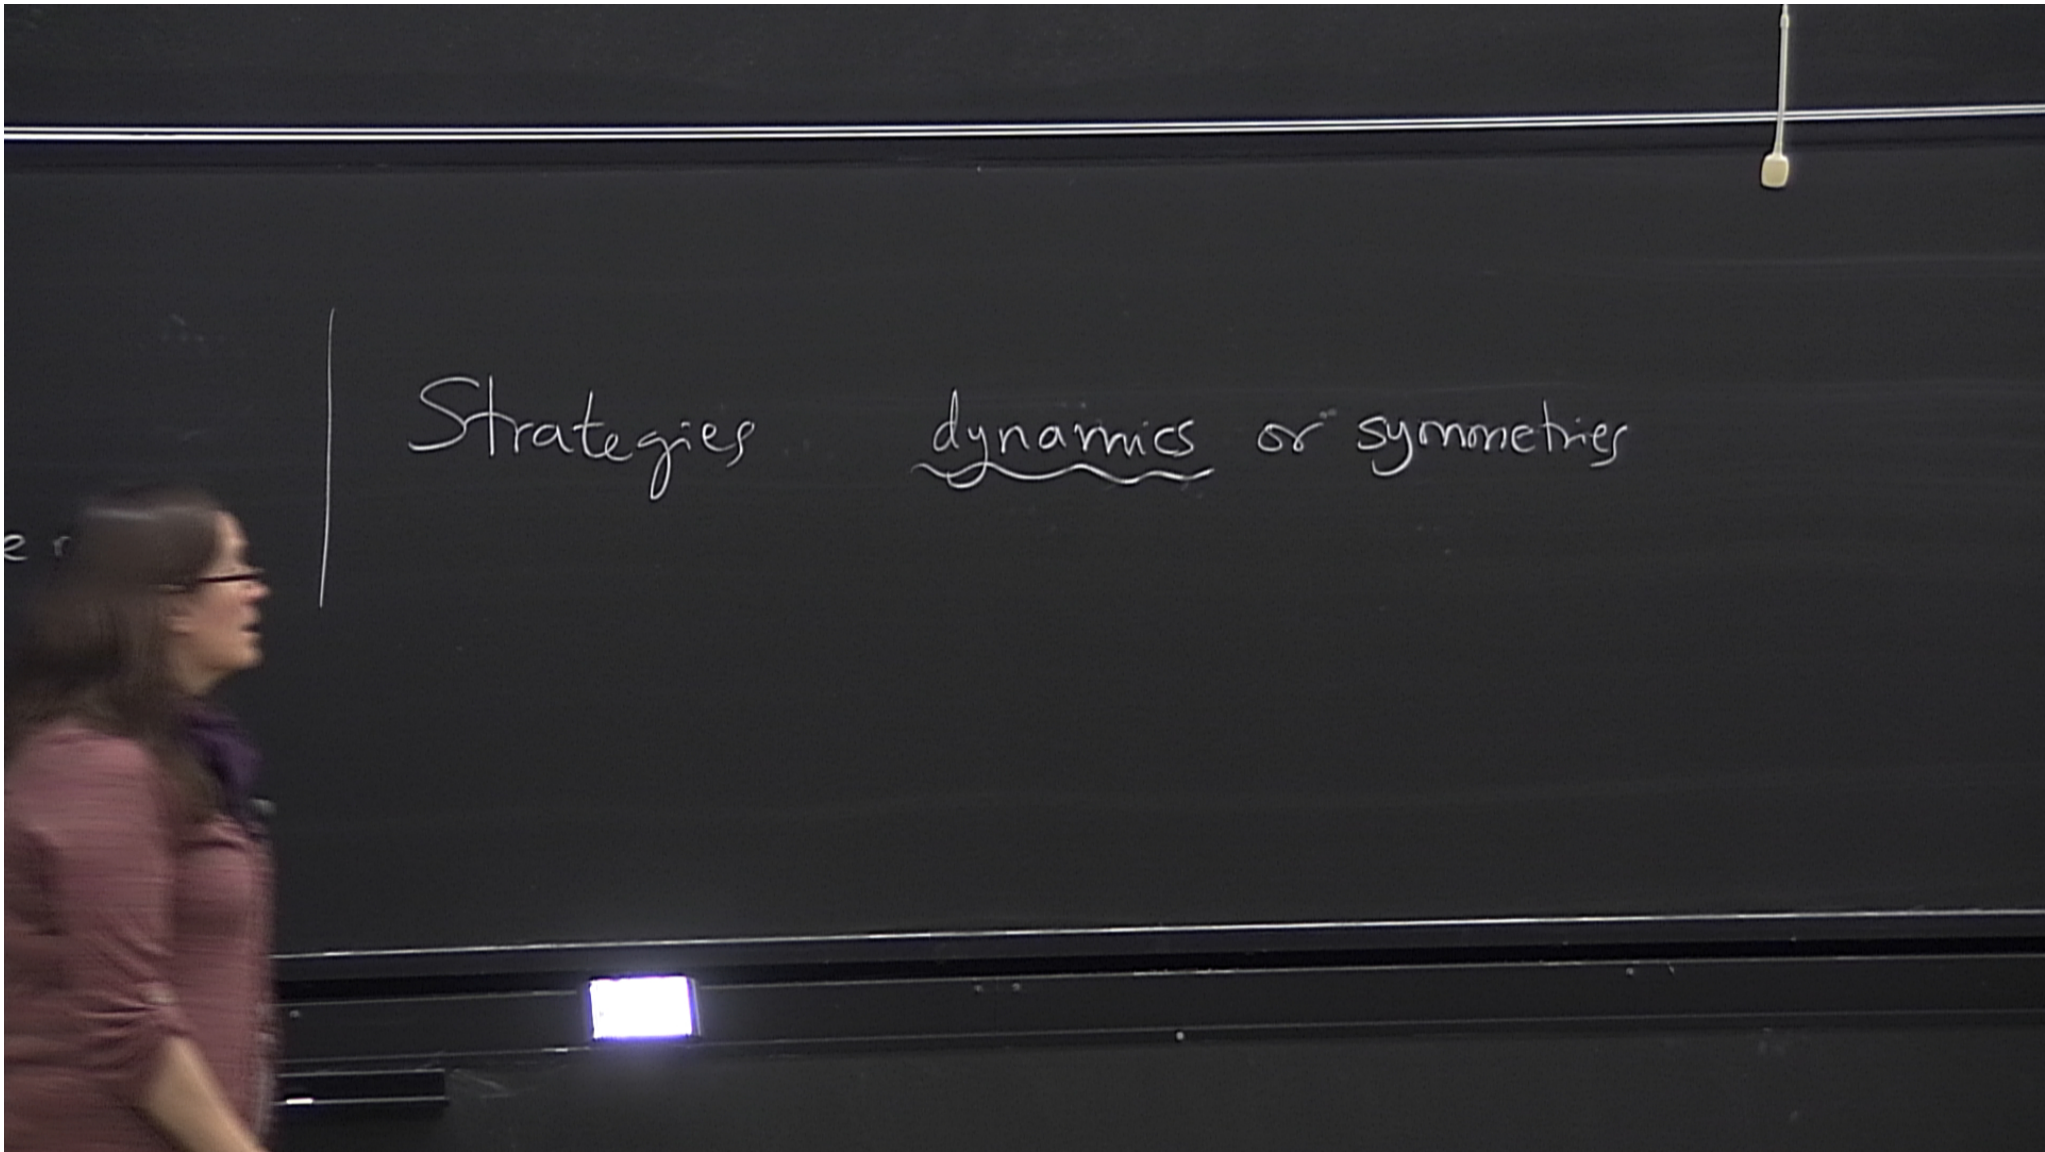 Strategies dynamics or symmetries